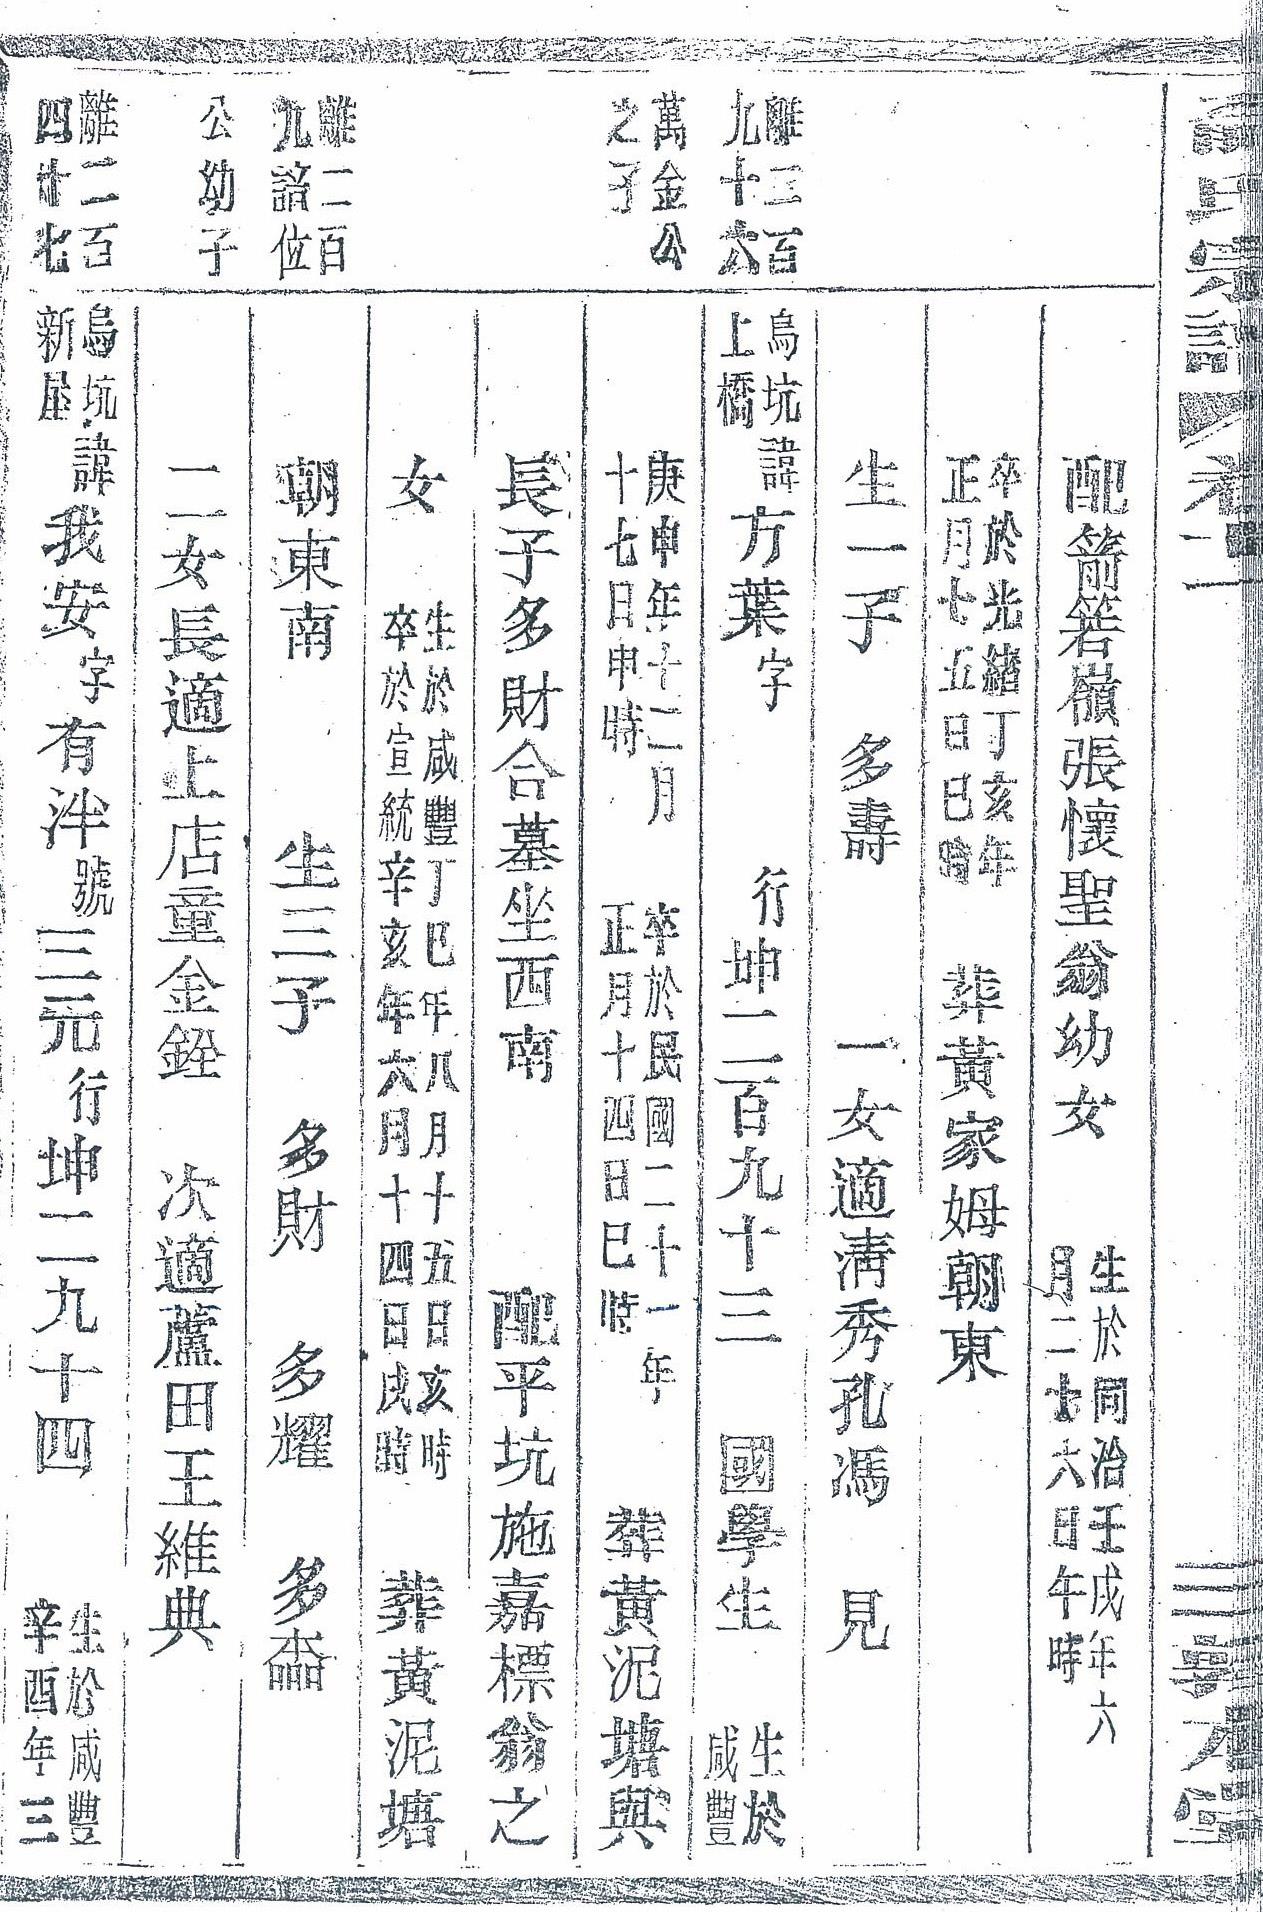 配箭箬嶺張懷聖翁幼女 生於同治壬戌年六月二十六日午時
卒於光緒丁亥年正月七五日巳時 葬黃家姆朝東
生一子 多壽 一女適淸秀孔馮 見
離三百九十六 烏坑上橋 諱方葉字 行坤二百九十三 國學生 生於咸豐
萬金公之子 庚申年十二月十七日申時 卒於民國二十一年正月十四日巳時 葬黃泥塘與
長子多財合墓坐西南 配平坑施嘉標翁之
女 生於咸豐丁巳年八月十五日亥時卒於宣統辛亥年六月十四日戌時 葬黃泥塘
離二百九諳位 朝東南 生三子 多財 多耀 多
公幼子 二女長適上店童金銓 次適蘆田王維典
離二百四廿七 烏坑新屋 諱我安字有泮號三元行坤二九十四 生於咸豐辛酉年三